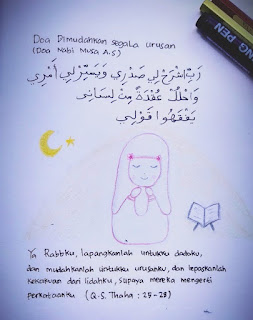 Doa Dimudahkan segala urusan
(Doa Nabi Musa A.S)
رَبِّ اشْرَحْ لِي صَدْرِي وَيَسِّرْ لِي أَمْرِي
وَاحْلُلْ عُقْدَةً مِنْ لِسَانِي
يَفْقَهُوا قَوْلِي
Ya Rabbku, lapangkanlah untukku dadaku,
dan mudahkanlah untukku urusanku, dan lepaskanlah
kekakuan dari lidahku, supaya mereka mengerti
perkataanku (Q.S. Thaha : 25-28)
NG PEN